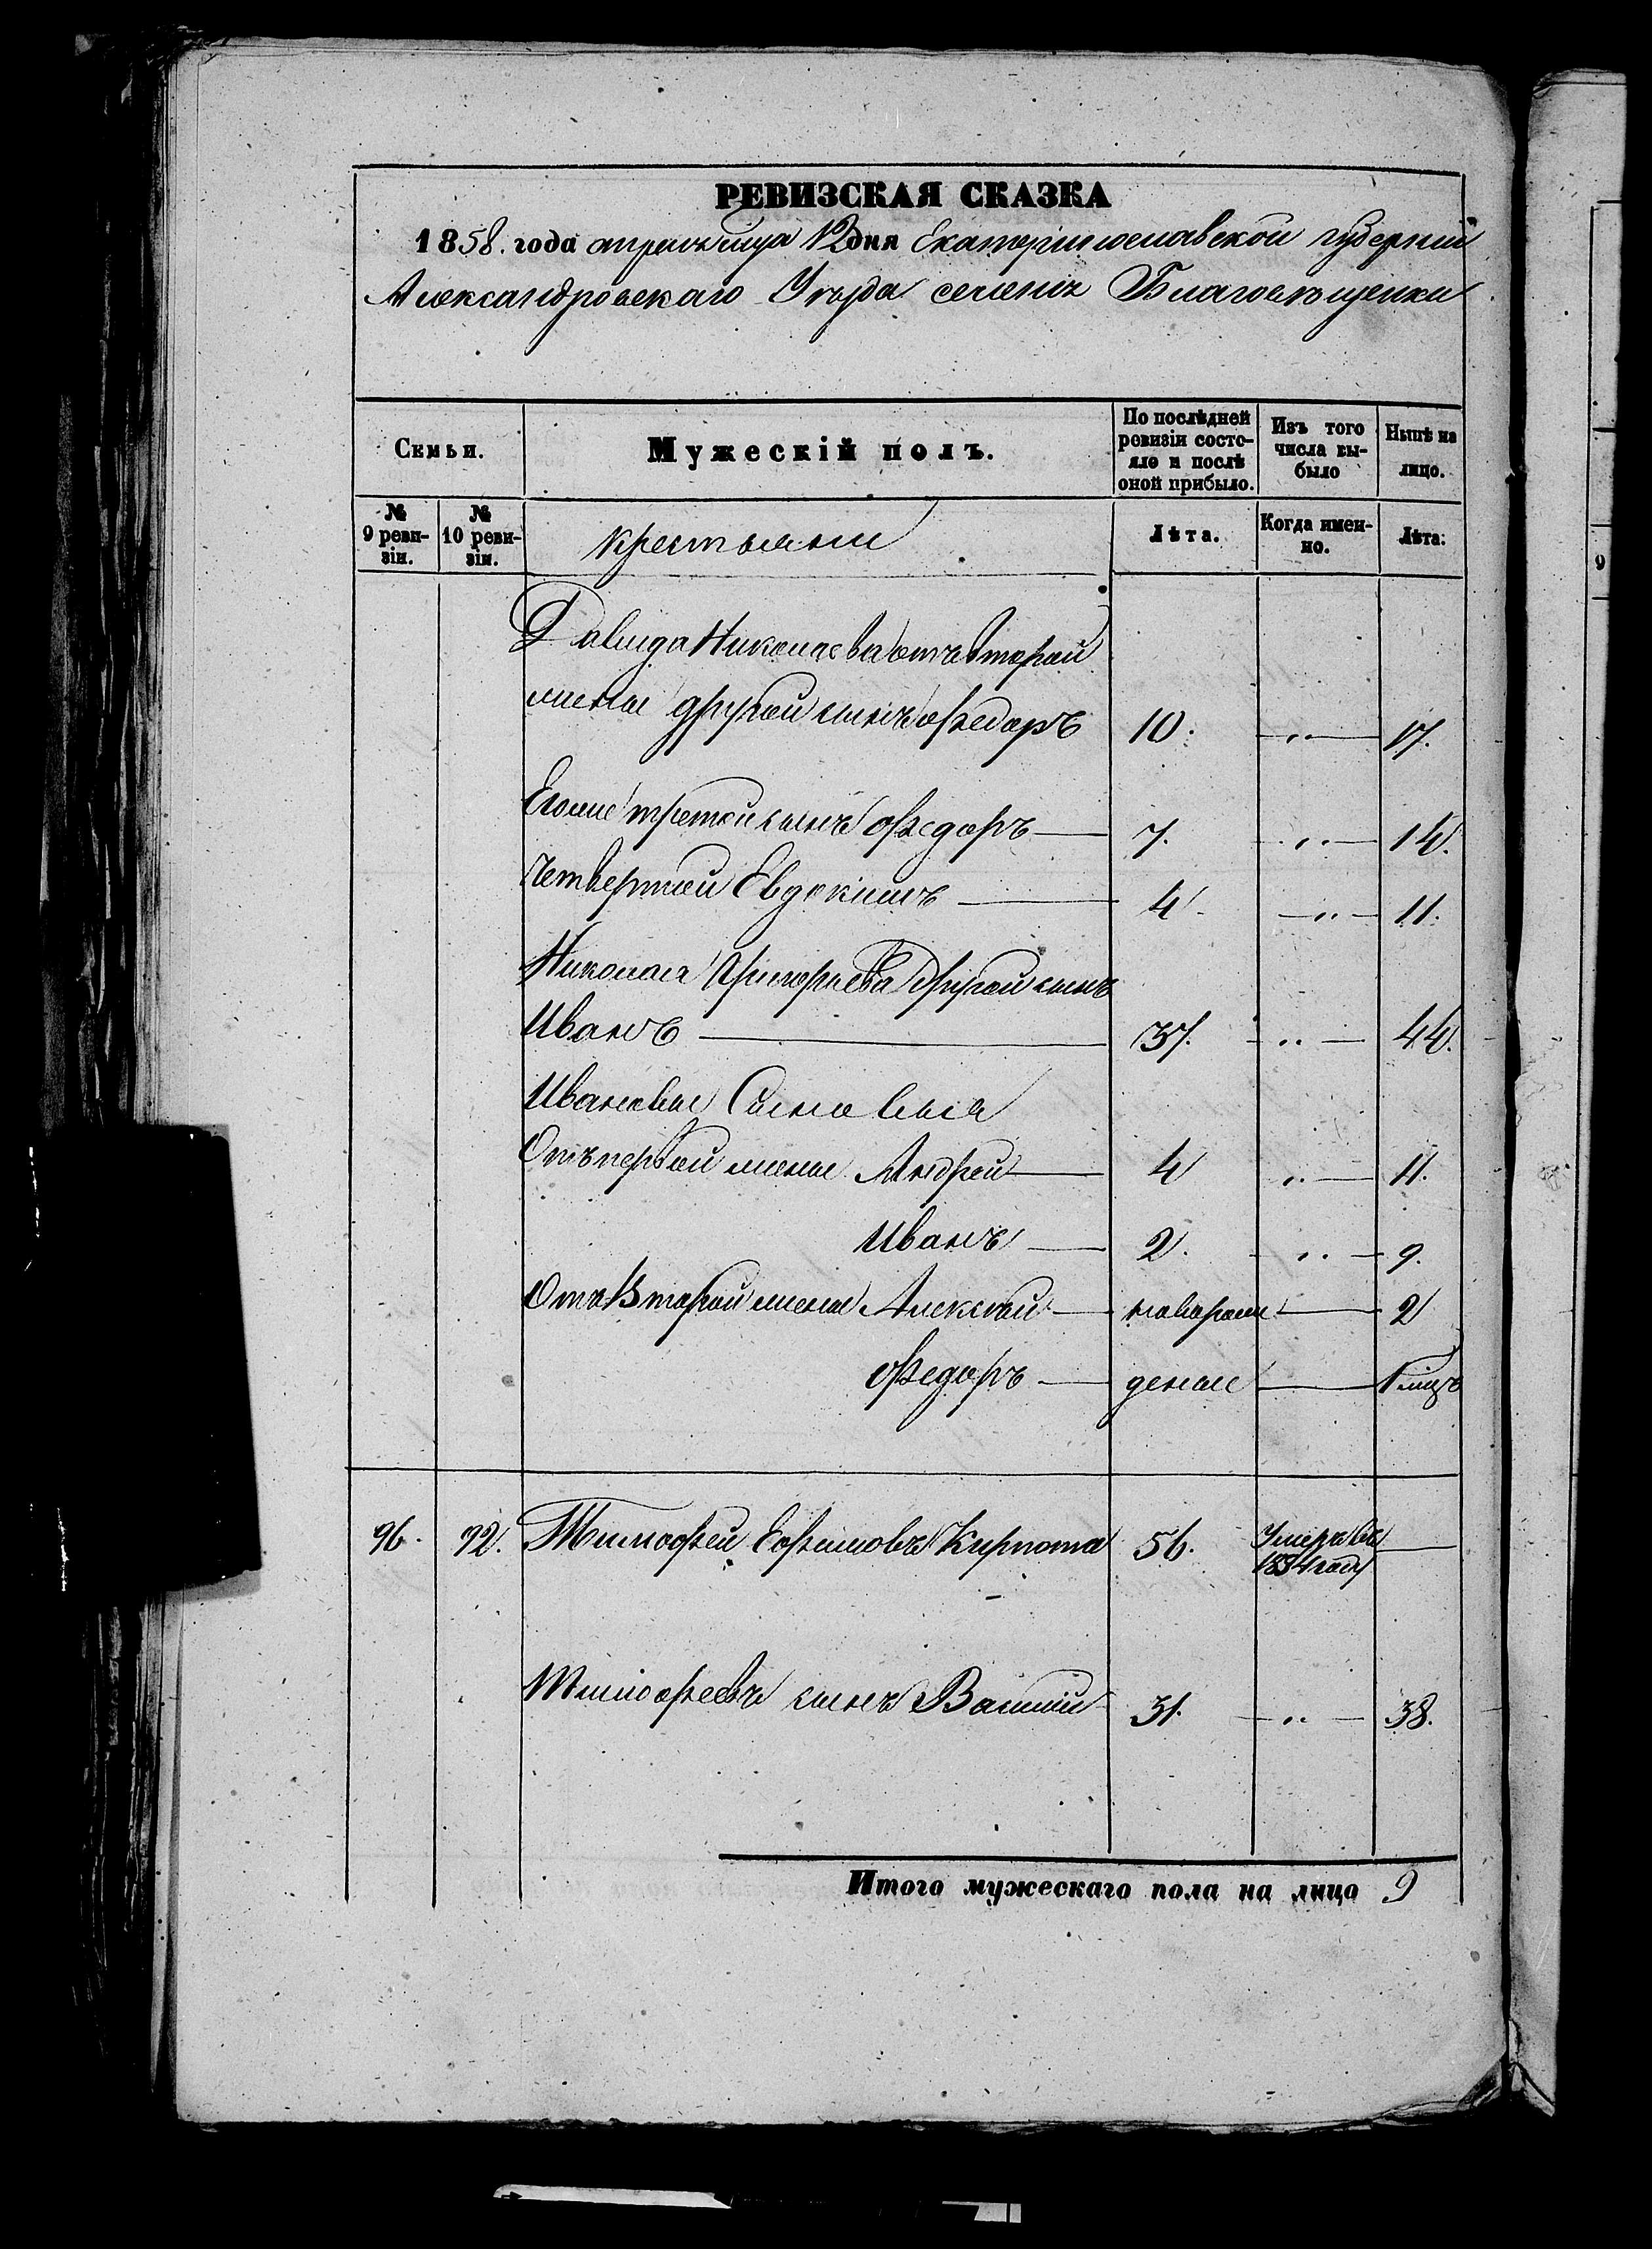 РЕВИЗСКАЯ СКАЗКА
1858. года апреля мца 12 дня Екатеринославской губернии
Александровскаго Уезда селения Благовещенки
Семьи.
Мужескій полъ.
По послѣдней ревизіи состояло и послѣ оной прибыло.
Изъ того числа выбыло
Нынѣ на лицо.
№ 9 ревизіи.
№ 10 ревизіи.
крестьяни
Лѣта.
Когда именно.
Лѣта.
Давида Николаева отъ второй
жены другой сынъ Федоръ 10. „ 17.
Егоже третой сынъ Федоръ 7. „ 14.
четвертой Евдокимъ 4 „ 11.
Николая Григориева Другой сынъ
Иванъ 37. „ 44.
Ивановы Сыновья
Отъ первой жены Андрей 4 „ 11.
Иванъ 2. „ 9.
Отъ Второй жены Алексей новорож 2
Федоръ деные 1 мцъ
96. 92. Тимофей Ефимовъ Кирпота 56. Умеръ въ
1854 году
Тимофеевъ сынъ Василий 31. „ 38.
Итого мужескаго пола на лицо 9
9